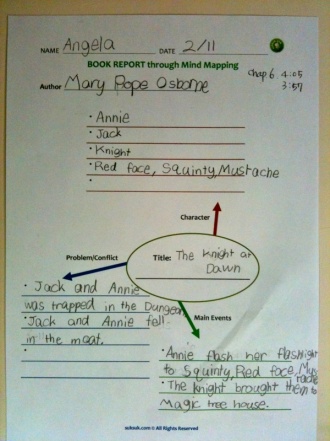 NAME Angela DATE 2/11
BOOK REPORT through Mind Mapping
Chap 6 4:05
3:57
Author Mary Pope Osborne
• Annie
• Jack
• Knight
• Red face, Squinty, Mustache
•
Character
Problem/Conflict
Title: The Knight at
Dawn
• Jack and Annie
was trapped in the Dungeon
• Jack and Annie fell
in the moat.
Main Events
• Annie flash her flashlight
to Squinty, Red face, Mustache
• The knight brought them to
Magic tree house.
© All Rights Reserved